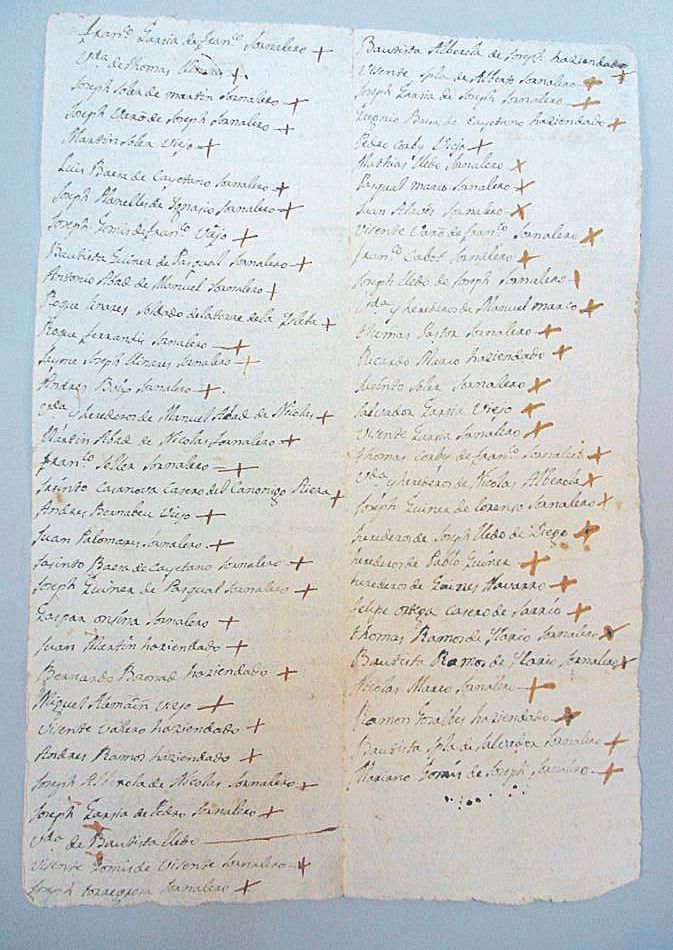 Fran.co Garsia de fran.co Jornalero +
V.da de thomas +
Joseph Soler de martin Jornalero +
Joseph Veró de Joseph Jornalero +
Martin Soler Viejo +
Luis Baesa de Cayetano Jornalero +
Joseph de Ignasio Jornalero +
Joseph Gomis de fran.co Viejo +
Bautista Guiner de Pasqual Jornalero +
Antonio Abad de Manuel Jornalero +
Roque Linares Soldado de la torre de la Isleta +
Roque ferrandis Jornalero +
Jayme Joseph Llinares Jornalero +
Andres Jornalero +
V.da y herederos de Manuel Abad de Nicolas +
Martin Abad de Nicolas Jornalero +
fran.co Soller Jornalero +
Jasinto Casanova Casero del Canonigo Riera +
Andres Bernabeu Viejo +
Juan Palomares Jornalero +
Jasinto Baesa de cayetano Jornalero +
Joseph Guiner de Pasqual Jornalero +
Gaspar onsina Jornalero +
Juan Martin haziendado +
Bernardo haziendado +
Miguel Alemañ Viejo +
Vicente Valero haziendado +
Andres Ramos haziendado +
Joseph Alberola de Nicolas Jornalero +
Joseph Garsia de Pedro Jornalero +
V.da de Bautista Uedo
Visente Gomis de Visente Jornalero +
Joseph torregrosa Jornalero +
Bautista Alberola de Joseph haziendado +
Visente Spla de Alberto Jornalero +
Joseph Garsia de Joseph Jornalero +
Baesa de Cayetano haziendado +
Pedro Corby Viejo +
Mathias Uedo Jornalero +
Pasqual marco Jornalero +
Juan Jornalero +
Visente Varó de fran.co Jornalero +
fran.co Cadet Jornalero +
Joseph Uedo de Joseph Jornalero +
V.da y herederos de Manuel marco +
thomas Pastor Jornalero +
Ricardo Marco haziendado +
Jasinto Soler Jornalero +
Salvador Garsia Viejo +
Vicente Garsia Jornalero +
thomas Corby de fran.co Jornalero +
V.da y herederos de Nicolas Alberola +
Joseph Guiner de Lorenzo Jornalero +
herederos de Joseph Uedo de Diego +
herederos de Pablo Guiner +
herederos de Navarro +
felipe ortega Casero de Sarrio +
thomas Ramos de Ylario Jornalero +
Bautista Ramos de Ylario Jornalero +
Nicolas Marco Jornalero +
Ramon Goralbes haziendado +
Bautista Spla de Salvador Jornalero +
Mariano Gomis de Joseph Jornalero +